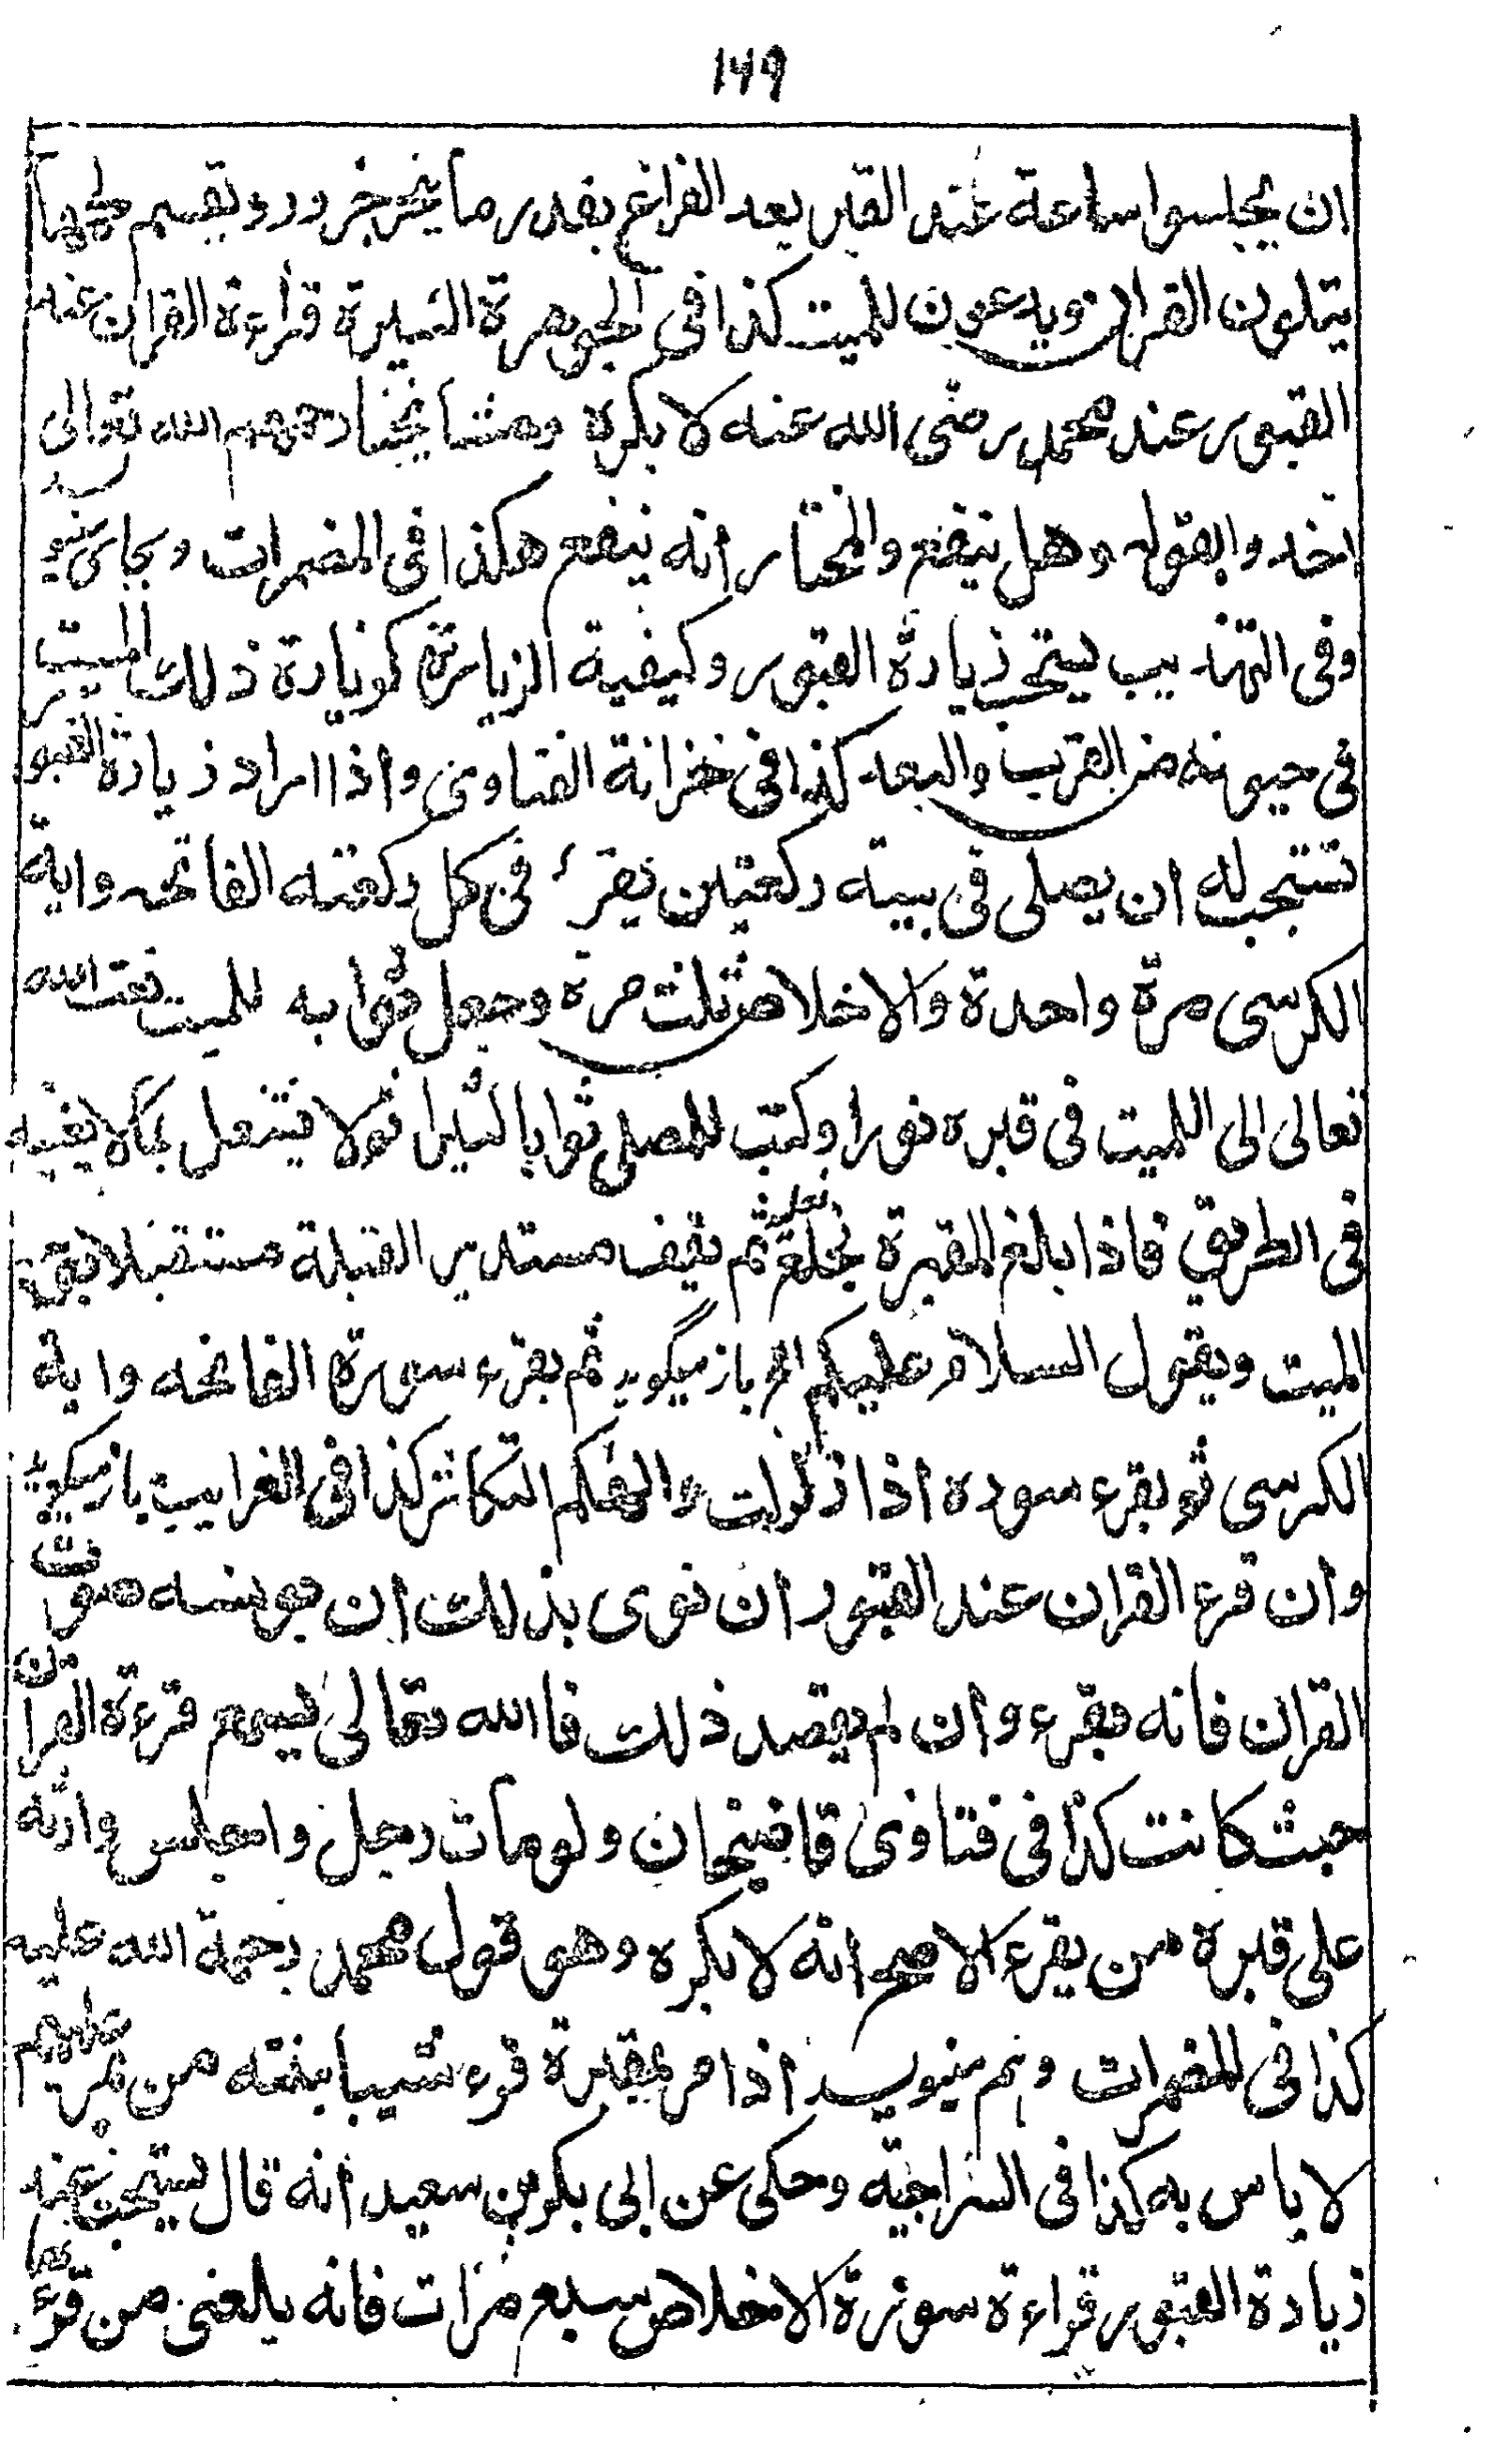 ۱۴۹
ان يجلسوا ساعة عند القبر بعد الفراغ بقدر ما ينحر جزور ويقسم لحمها
يتلون القران ويدعون للميت كذا فى الجوهرة النيرة قراءة القران عند
القبور عند محمد رضى الله عنه لا يكره ومشايخنا رحمهم الله تعالى
اخذوا بقوله وهل ينفع والمختار انه ينفع هكذا فى المضمرات وبجاى
وفى التهذيب يستحب زيادة القبور وكيفية الزيارة كزيادة ذلك الميت
فى حيوته من القرب والبعد كذا فى خزانة الفتاوى واذا اراد زيادة القبور
تستحب له ان يصلى فى بيته ركعتين يقرء فى كل ركعته الفاتحه واية
الكرسى مرة واحدة والاخلاص ثلث مرة وجعل ثوابه للميت بعث الله
تعالى الى الميت فى قبره نورا وكتب للمصلى ثوابا كثيرا ثم لا يشغل بما لا يعنيه
فى الطريق فاذا بلغ المقبرة يخلع نعليه ثم يقف مستدير القبلة مستقبلا
الميت ويقول السلام عليكم الخ باز ميگويد ثم يقرء سورة الفاتحه واية
الكرسى ثم يقرء سوده اذا زلزلت والهكم التكاثر كذا فى الغرايب باز ميگويد
وان قرء القران عند القبور ان نوى بذلك ان يونسه صوت
القران فانه يقرء وان لم يقصد ذلك فا الله تعالى يسمع قرءة القران
حيث كانت كذا فى فتاوى قاضيخان ولو مات رجل واجلس وارثه
على قبرة من يقرء الاصح انه لا يكره وهو قول محمد رحمة الله عليه
كذا فى المضمرات وهم مينويسد اذا مر بمقبرة قرء شيبا بنته من عليهم
لا باس به كذا فى السراجيه وحكى عن ابى بكر بن سعيد انه قال يستحب عند
زيادة القبور قراءة سورة الاخلاص سبع مرات فانه بلغنى من قرءها